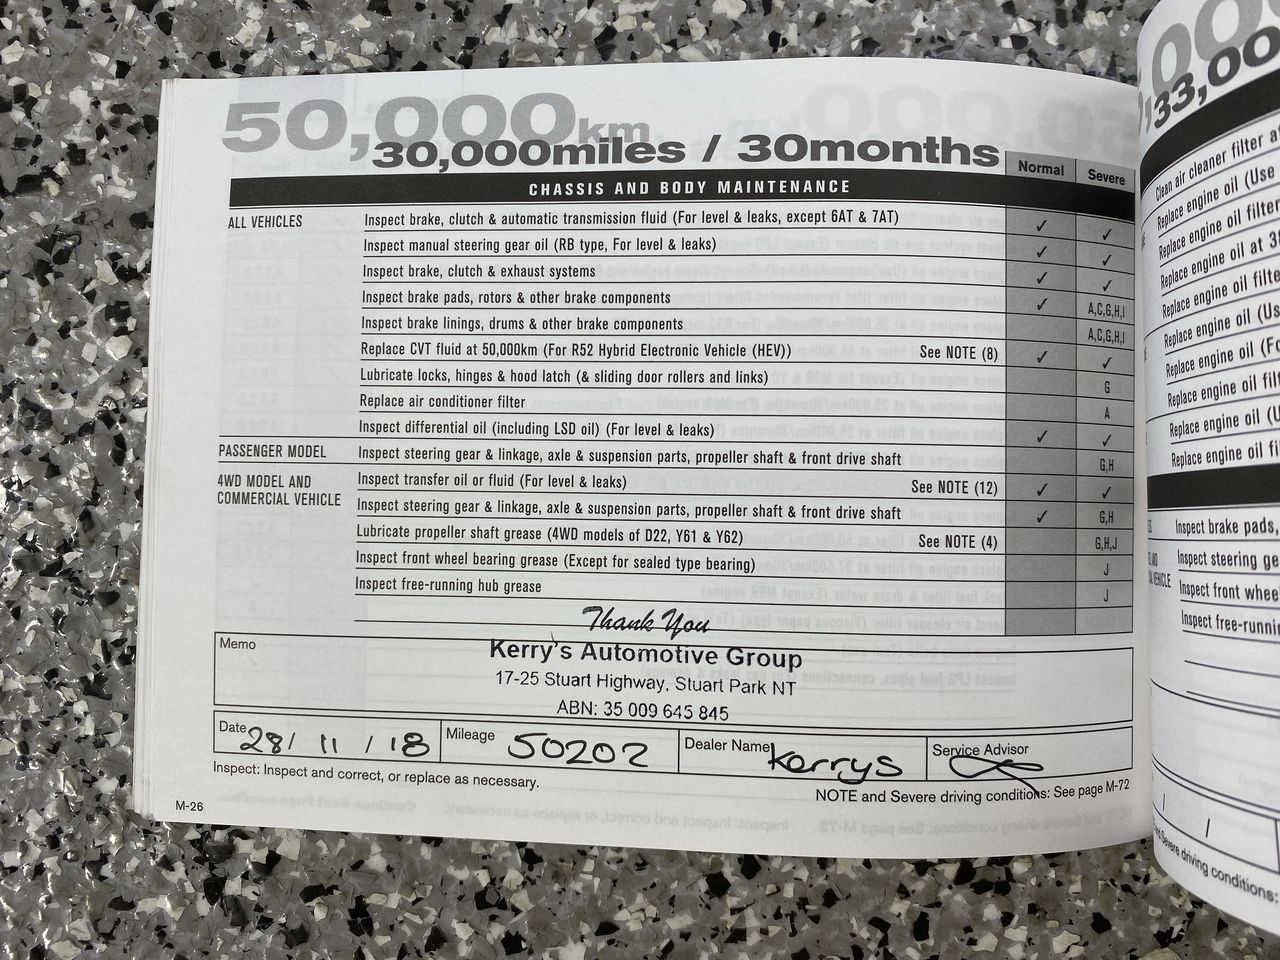 50,000km
30,000miles / 30months
Normal Severe
CHASSIS AND BODY MAINTENANCE
ALL VEHICLES Inspect brake, clutch & automatic transmission fluid (For level & leaks, except 6AT & 7AT) ✓ ✓
Inspect manual steering gear oil (RB type, For level & leaks) ✓ ✓
Inspect brake, clutch & exhaust systems ✓ ✓
Inspect brake pads, rotors & other brake components ✓ A,C,G,H,I
Inspect brake linings, drums & other brake components A,C,G,H,I
Replace CVT fluid at 50,000km (For R52 Hybrid Electronic Vehicle (HEV)) See NOTE (8) ✓ ✓
Lubricate locks, hinges & hood latch (& sliding door rollers and links) G
Replace air conditioner filter A
Inspect differential oil (including LSD oil) (For level & leaks) ✓ ✓
PASSENGER MODEL Inspect steering gear & linkage, axle & suspension parts, propeller shaft & front drive shaft G,H
4WD MODEL AND Inspect transfer oil or fluid (For level & leaks) See NOTE (12) ✓ ✓
COMMERCIAL VEHICLE Inspect steering gear & linkage, axle & suspension parts, propeller shaft & front drive shaft ✓ G,H
Lubricate propeller shaft grease (4WD models of D22, Y61 & Y62) See NOTE (4) G,H,J
Inspect front wheel bearing grease (Except for sealed type bearing) J
Inspect free-running hub grease J
Thank You
Memo
Kerry's Automotive Group
17-25 Stuart Highway, Stuart Park NT
ABN: 35 009 645 845
Date 28/11/18 Mileage 50202 Dealer Name Kerrys Service Advisor
Inspect: Inspect and correct, or replace as necessary.
NOTE and Severe driving conditions: See page M-72
M-26
33,00
Clean air cleaner filter
Replace engine oil (Use
Replace engine oil filter
Replace engine oil at
Replace engine oil filte
Replace engine oil (Us
Replace engine oil (Fo
Replace engine oil filt
Replace engine oil (
Replace engine oil fi
Inspect brake pads,
Inspect steering ge
Inspect front whee
Inspect free-runnin
driving conditions: